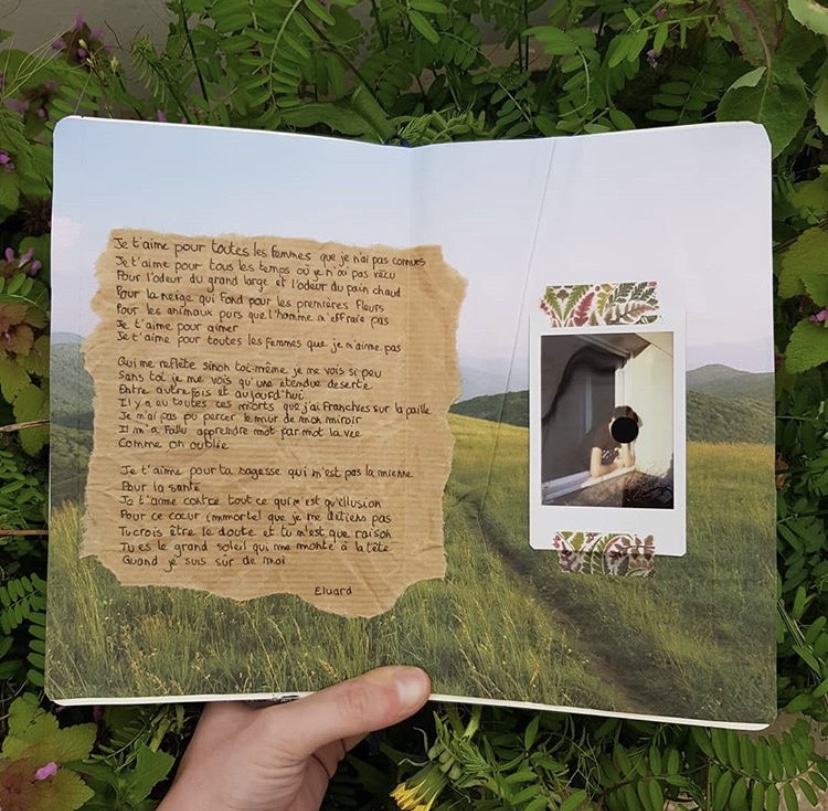 Je t'aime pour toutes les femmes que je n'ai pas connues
Je t'aime pour tous les temps où je n'ai pas vécu
Pour l'odeur du grand large et l'odeur du pain chaud
Pour la neige qui fond pour les premières fleurs
Pour les animaux purs que l'homme n'effraie pas
Je t'aime pour aimer
Je t'aime pour toutes les femmes que je n'aime pas
Qui me reflète sinon toi-même je me vois si peu
Sans toi je me vois qu'une étendue déserte
Entre autrefois et aujourd'hui
Il y a eu toutes ces morts que j'ai franchies sur la paille
Je n'ai pas pu percer le mur de mon miroir
Il m'a fallu apprendre mot par mot la vie
Comme on oublie
Je t'aime pour ta sagesse qui n'est pas la mienne
Pour la santé
Je t'aime contre tout ce qui n'est qu'illusion
Pour ce cœur immortel que je ne détiens pas
Tu crois être le doute et tu n'est que raison
Tu es le grand soleil qui me monte à la tête
Quand je suis sûr de moi
Eluard